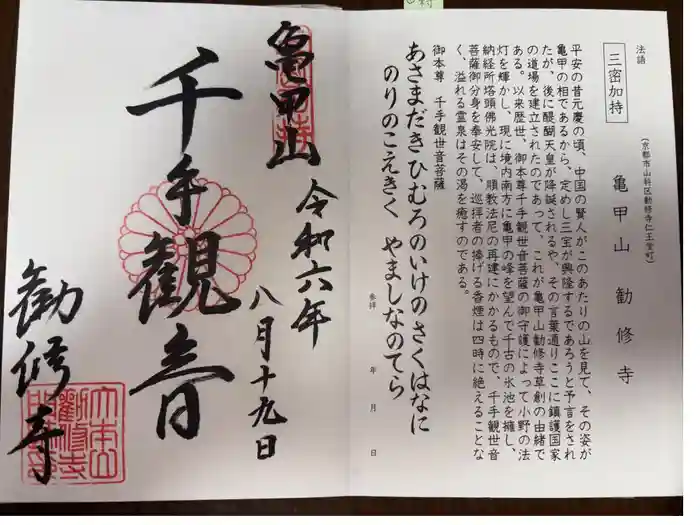 法語
三密加持
(京都市山科区勧修寺仁王堂町)
亀甲山 勧修寺
平安の昔元慶の頃、中国の賢人がこのあたりの山を見て、その姿が
亀甲の相であるから、定めし三宝が興隆するであろうと予言をされ
たが、後に醍醐天皇が降誕されるや、その言葉通りここに鎮護国家
の道場を建立されたのであって、これが亀甲山勧修寺草創の由緒で
ある。以来歴世、御本尊千手観世音菩薩の御守護によって小野の法
灯を輝かし、現に境内南方に亀甲の峰を望んで千古の氷池を擁し、
納経所塔頭佛光院は、順教法尼の再建にかかるもので、千手観世音
菩薩御分身を奉安して、巡拝者の捧げる香煙は四時に絶えることな
く、溢れる霊泉はその渇を癒すのである。
御本尊 千手観世音菩薩
あさまだきひむろのいけのさくはなに
のりのこえきく やましなのてら
参拝 年 月 日
亀甲山
令和六年
八月十九日
千手観音
勧修寺
大本山
勧修寺